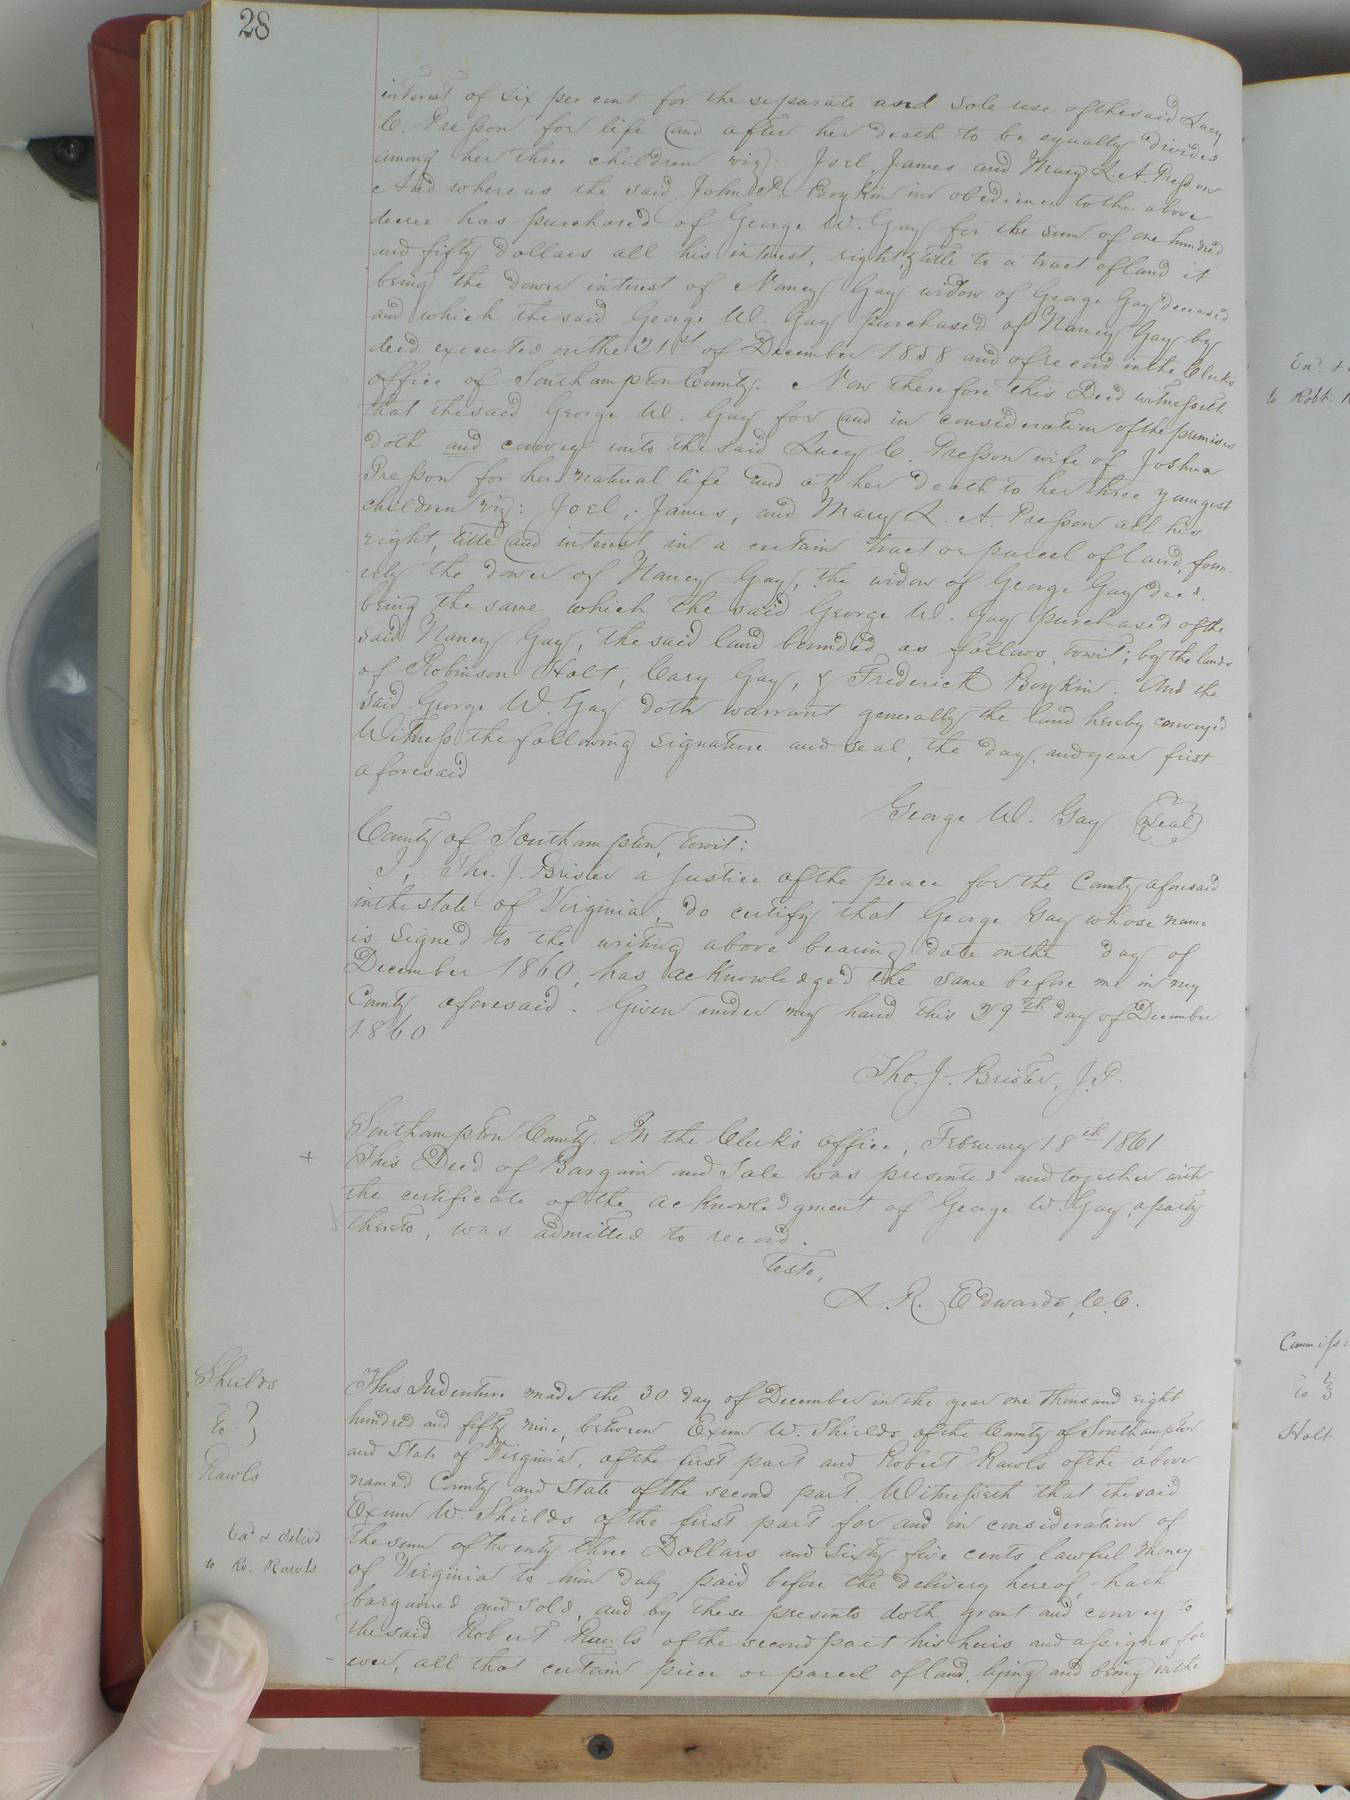 28
interest of six per cent for the separate and sole use of the said Lucy
C. Presson for life and after her death to be equally divided
among her three children viz: Joel, James and Mary L. A. Presson
And whereas the said John P. Boykin in obedience to the above
decree has purchased of George W. Gay for the sum of one hundred
and fifty dollars all his interest, right, & title to a tract of land it
being the dower interest of Nancy Gay widow of George Gay deceased
and which the said George W. Gay purchased of Nancy Gay by
deed executed on the 21st of December 1858 and of record in the Clerks
office of Southampton County. Now therefore this Deed witnesseth
that the said George W. Gay for and in consideration of the premises
doth and convey unto the said Lucy C. Presson wife of Joshua
Presson for her natural life and at her death to her three youngest
children viz: Joel, James, and Mary L. A. Presson all his
right, title and interest in a certain tract or parcel of land, form-
erly the dower of Nancy Gay, the widow of George Gay decd.
being the same which the said George W. Gay purchased of the
said Nancy Gay, the said land bounded as follows, towit; by the lands
of Robinson Holt, Cary Gay, & Frederick Boykin. And the
said George W. Gay doth warrant generally the land hereby conveyed
Witness the following signature and seal, the day, and year first
aforesaid
George W. Gay (Seal)
County of Southampton, towit:
I, Tho. J. Brister a Justice of the peace for the County aforesaid
in the state of Virginia, do certify that George Gay whose name
is signed to the writing above bearing date on the day of
December 1860, has acknowledged the same before me in my
County aforesaid. Given under my hand this 29th day of December
1860
Tho. J. Brister, J.P.
Southampton County. In the Clerk's office, February 18th 1861
+ This Deed of Bargain and Sale was presented and together with
the certificate of the acknowledgment of George W. Gay, a party
thereto, was admitted to record.
Teste,
L. R. Edwards, C.C.
Shields
to }
Rawls
Exd & delivd
to Ro. Rawls
This Indenture made the 30 day of December in the year one thousand eight
hundred and fifty nine, between Exum W. Shields of the County of Southampton
and State of Virginia, of the first part and Robert Rawls of the above
named County and State of the second part. Witnesseth that the said
Exum W. Shields of the first part for and in consideration of
the sum of twenty three Dollars and sixty five cents lawful money
of Virginia to him duly paid before the delivery hereof, hath
bargained and sold, and by these presents doth grant and convey to
the said Robert Rawls of the second part his heirs and assigns for
ever, all that certain piece or parcel of land, lying and being in the
to Robt.
to }
Holt